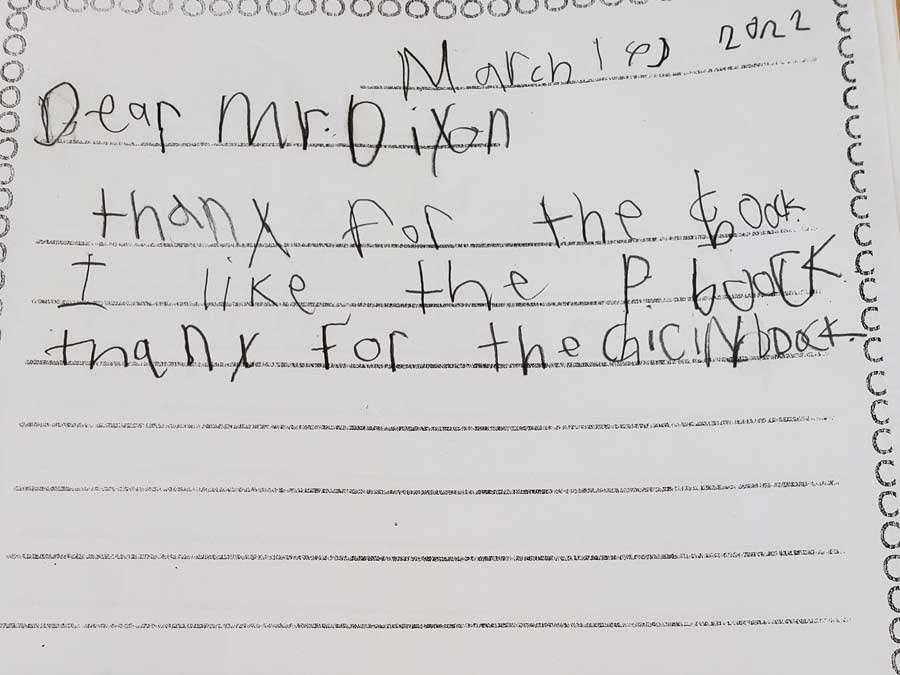 March 1 2022
Dear Mr. Dixon
thanx for the book.
I like the P. book
thanx for the chicin book.